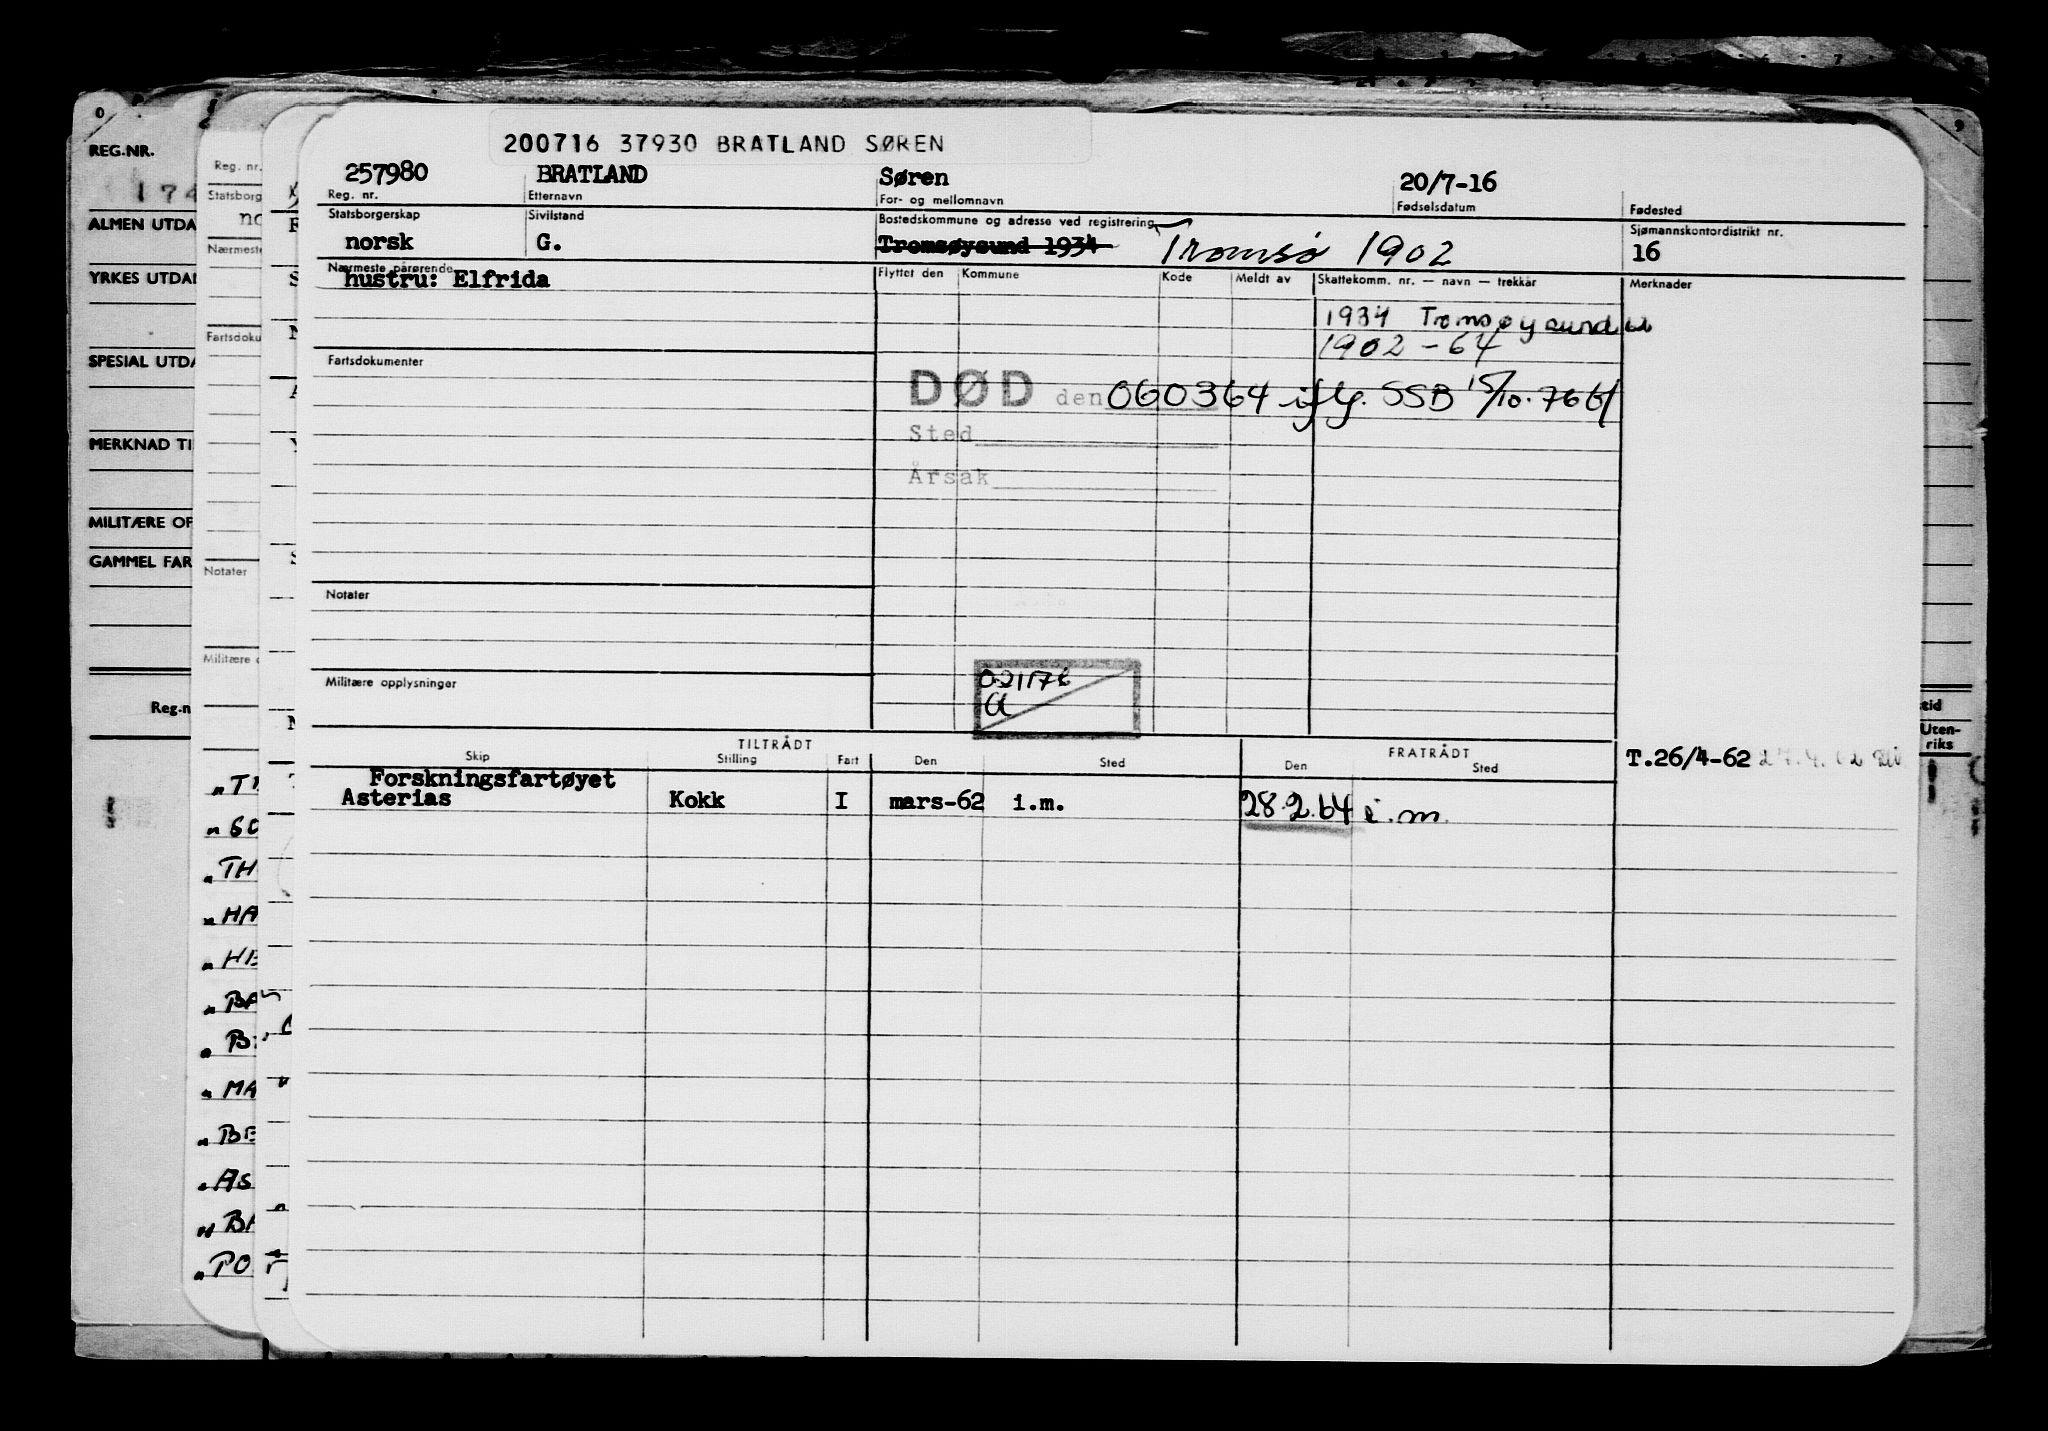 200716 37930 BRATLAND SØREN
257980 BRATLAND Søren 20/7-16
Reg. nr. Etternavn For- og mellomnavn Fødselsdatum Fødested
Statsborgerskap Sivilstand Bostedskommune og adresse ved registrering Sjømannskontordistrikt nr.
norsk G. Tromsøysund 1934 Tromsø 1902 16
Nærmeste pårørende Flyttet den Kommune Kode Meldt av Skattekomm. nr. — navn — trekkår Merknader
hustru: Elfrida
1934 Tromsøysund 62
1902 - 64
Fartsdokumenter
DØD den 060364 iflg. SSB 15/10.76
Sted
Årsak
Notater
Militære opplysninger
021176
TILTRÅDT FRATRÅDT
Skip Stilling Fart Den Sted Den Sted
T.26/4-62
Forskningsfartøyet
Asterias Kokk I mars-62 i.m. 28.2.64 i.m.
REG.NR.
174
ALMEN UTDA
YRKES UTDA
SPESIAL UTDA
MERKNAD TI
MILITÆRE OP
GAMMEL FAR
Reg.n
Reg. nr.
Statsborg
no
Nærmeste
Fartsdoku
Notater
Militære o
"TH
"HA
"MA
"BE
"PO
tid
Uten-
riks